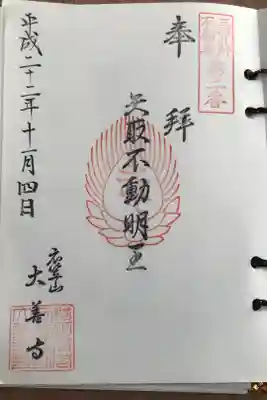 奉拝
矢取不動明王
平成二十二年十一月四日
衣笠山
大善寺